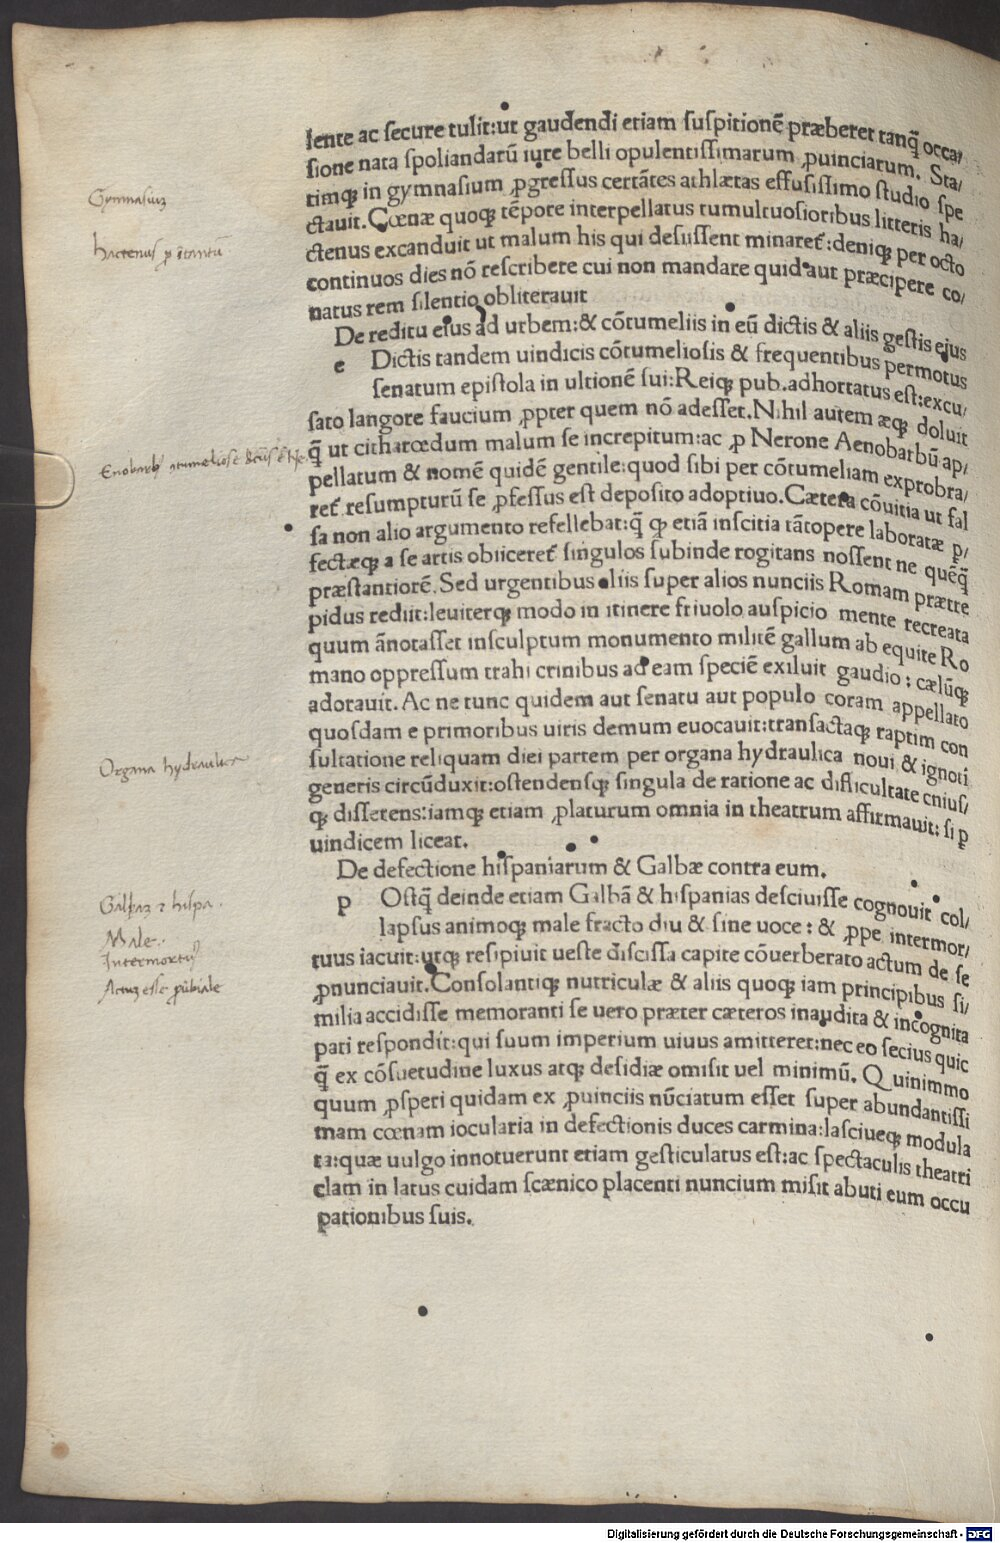 lente ac secure tulit:ut gaudendi etiam suspitionē præberet tanq̄ occa/
sione nata spoliandarū iure belli opulentissimarum ꝓuinciarum. Sta/
timq; in gymnasium ꝓgressus certātes athlætas effusissimo studio spe
ctauit. Cœnæ quoq; tēpore interpellatus tumultuosioribus litteris ha/
ctenus excanduit ut malum his qui desiissent minaret᷑:deniq; per octo
continuos dies nō rescribere cui non mandare quid aut præcipere co/
natus rem silentio obliterauit
De reditu eius ad urbem:& cōtumeliis in eū dictis & aliis gestis ejus
e Dictis tandem uindicis cōtumeliosis & frequentibus permotus
senatum epistola in ultionē sui:Reiq; pub.adhortatus est:excu/
sato langore faucium ꝓpter quem nō adesset. Nihil autem æq; doluit
q̄ ut citharœdum malum se increpitum:ac ꝓ Nerone Aenobarbū ap/
pellatum & nomē quidē gentile:quod sibi per cōtumeliam exprobra/
ret᷑ resumpturū se ꝓfessus est deposito adoptiuo. Cætera cōuitia ut fal
sa non alio argumento refellebat:q̄ ꝙ etiā inscitia tātopere laboratæ ꝑ/
fectæq; a se artis obiiceret᷑ singulos subinde rogitans nossent ne quēq̄
præstantiorē. Sed urgentibus aliis super alios nunciis Romam prætre
pidus rediit:leuiterq; modo in itinere friuolo auspicio mente recreata
quum ānotasset insculptum monumento militē gallum ab equite Ro
mano oppressum trahi crinibus ad eam speciē exiluit gaudio : cælūq;
adorauit. Ac ne tunc quidem aut senatu aut populo coram appellato
quosdam e primoribus uiris demum euocauit:transactaq; raptim con
sultatione reliquam diei partem per organa hydraulica noui & ignoti
generis circūduxit:ostendensq; singula de ratione ac difficultate cuius/
q; disserens:iamq; etiam ꝓlaturum omnia in theatrum affirmauit: si ꝑ
uindicem liceat.
De defectione hispaniarum & Galbæ contra eum.
p Ostq̄ deinde etiam Galbā & hispanias desciuisse cognouit col/
lapsus animoq; male fracto diu & sine uoce : & ꝓpe intermor/
tuus iacuit:utq; resipiuit ueste discissa capite cōuerberato actum de se
ꝓnunciauit. Consolantiq; nutriculæ & aliis quoq; iam principibus si/
milia accidisse memoranti se uero præter cæteros inaudita & incognita
pati respondit:qui suum imperium uiuus amitteret:nec eo secius quic
q̄ ex cōsuetudine luxus atq; desidiæ omisit uel minimū. Quinimmo
quum ꝓsperi quidam ex ꝓuinciis nūciatum esset super abundantissi
mam cœnam iocularia in defectionis duces carmina:lasciueq; modula
ta:quæ uulgo innotuerunt etiam gesticulatus est:ac spectaculis theatri
clam in latus cuidam scænico placenti nuncium misit abuti eum occu
pationibus suis.
Gymnasiuz
hactenus p
Organa hydraulica
Galbaz & hispa.
Male.
Intermortuꝰ
Digitalisierung gefördert durch die Deutsche Forschungsgemeinschaft - DFG